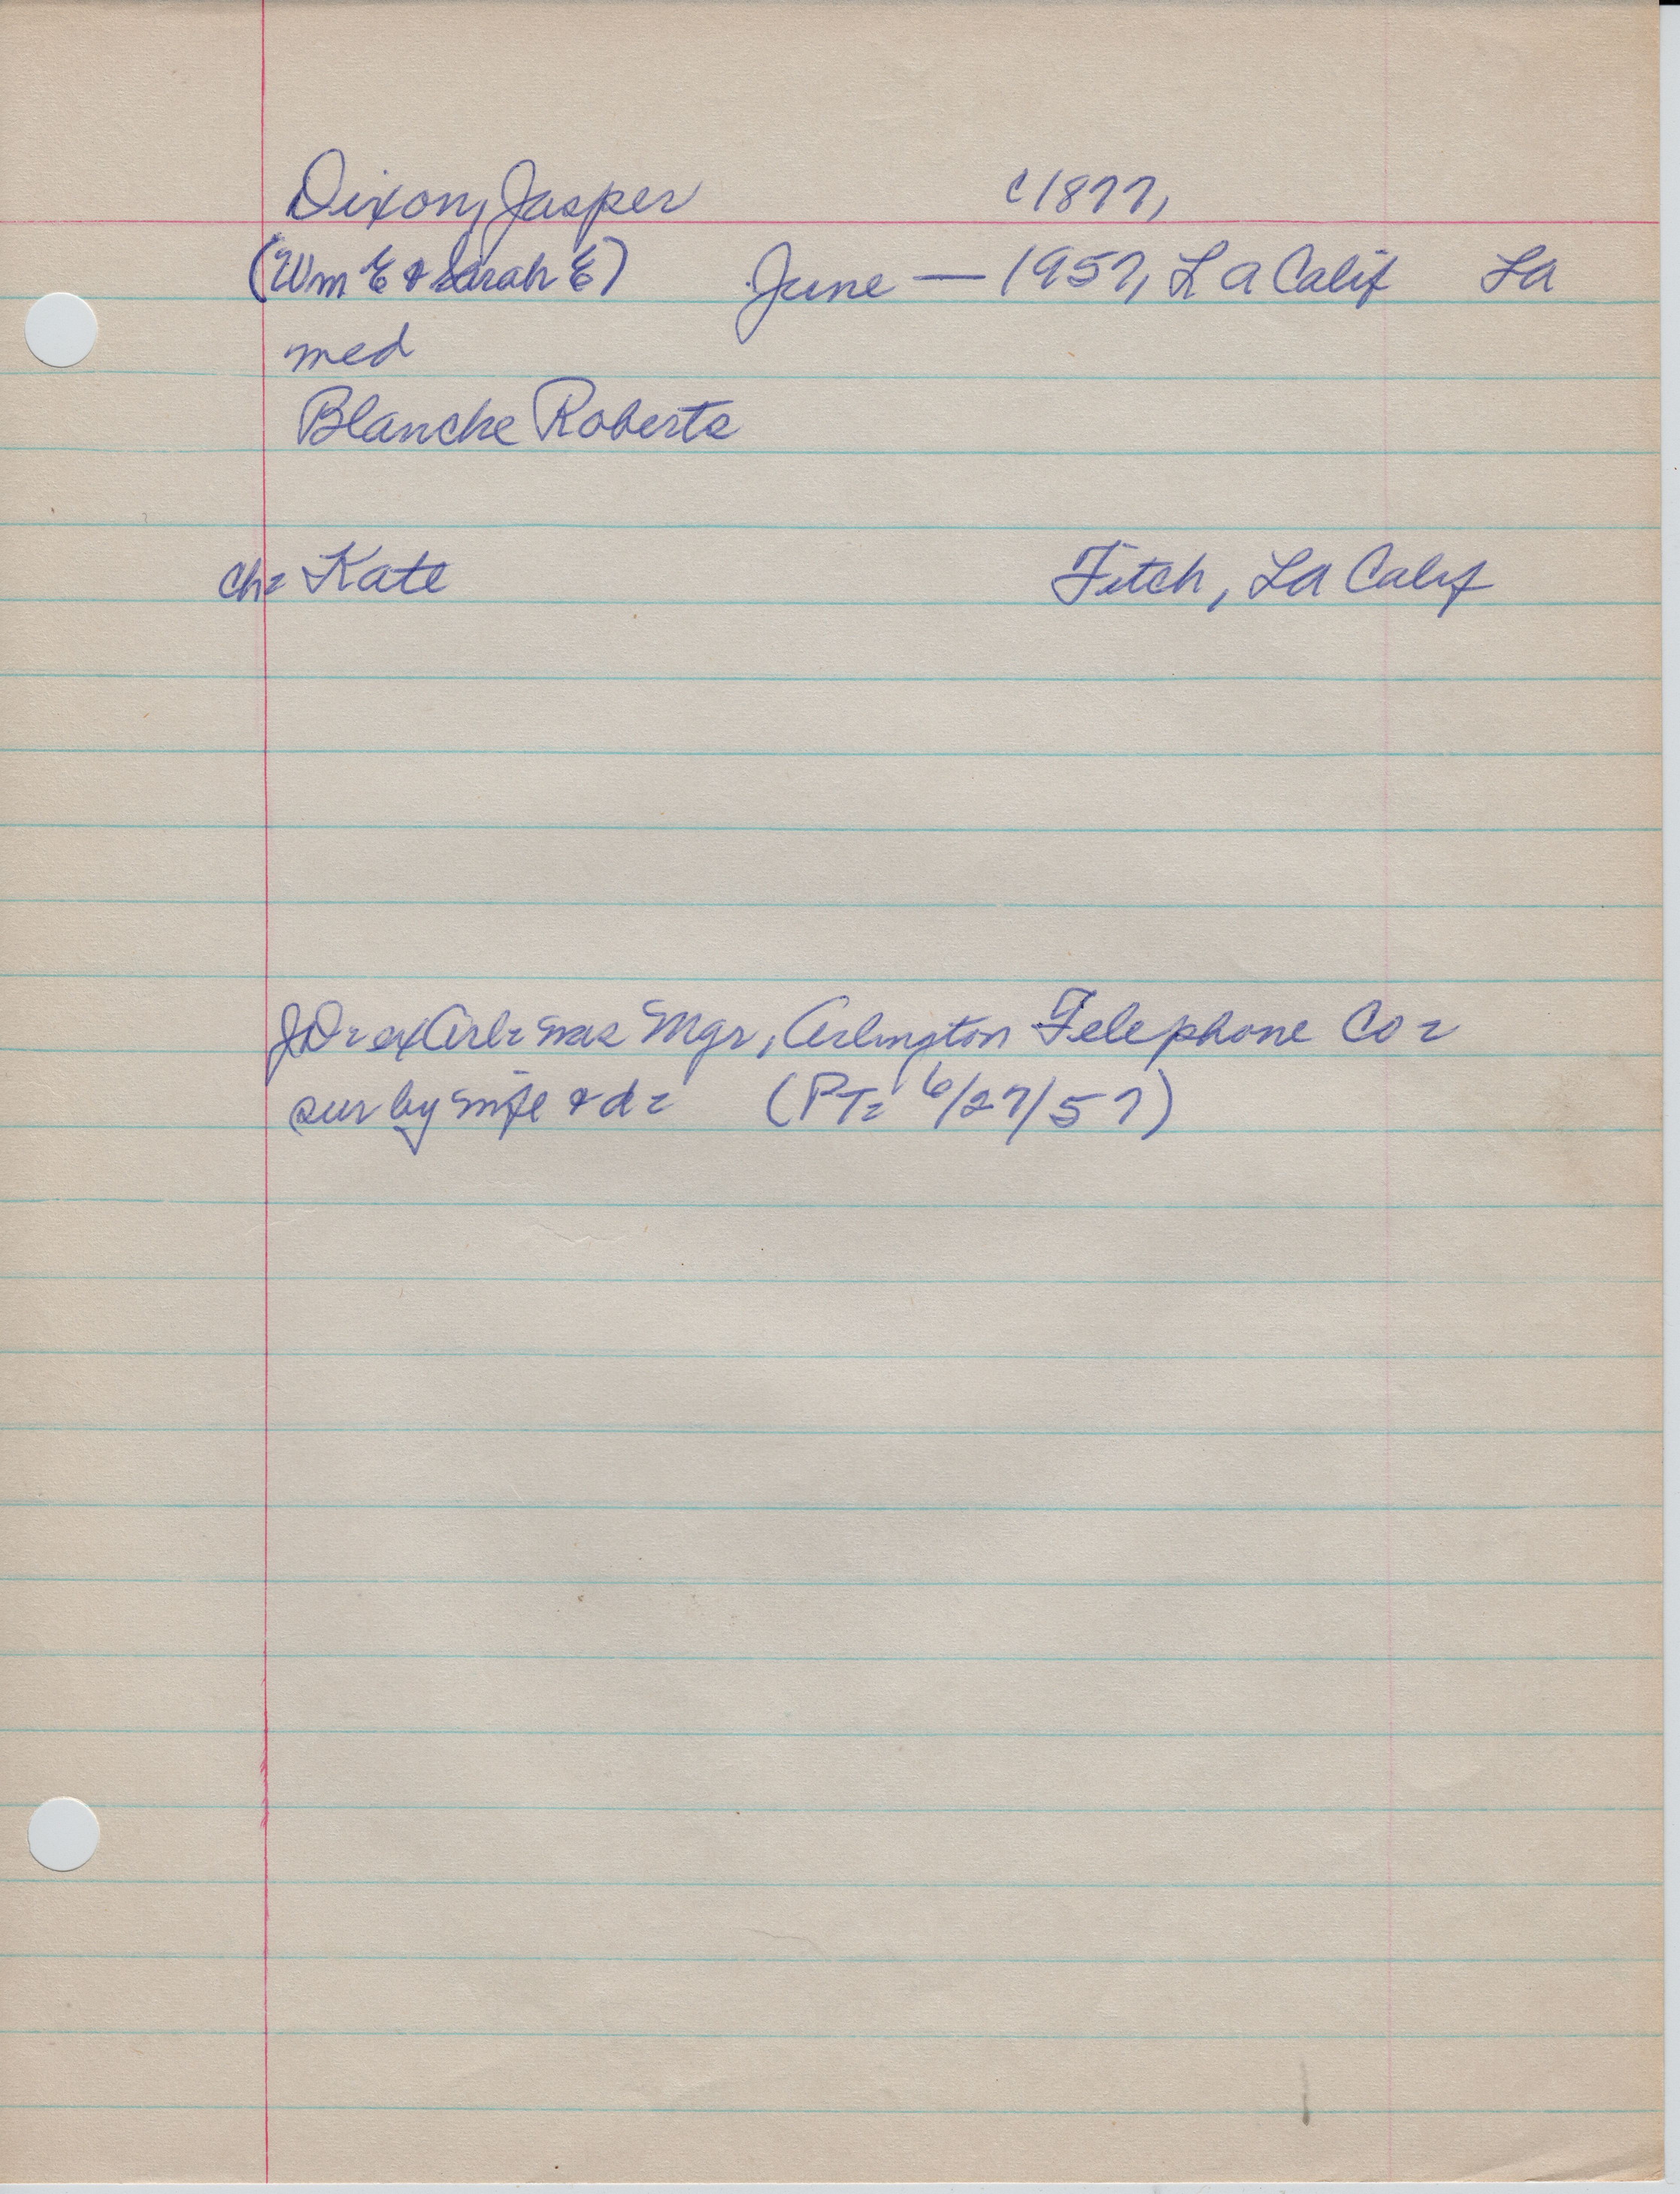 Dixon, Jasper c1877,
(Wm E & Sarah E) June — 1957, L A Calif LA
med
Blanche Roberts
ch= Kate Fitch, LA Calif
JD= ex Arl= was Mgr, Arlington Telephone Co=
sur by wife & d= (PT= 6/27/57)